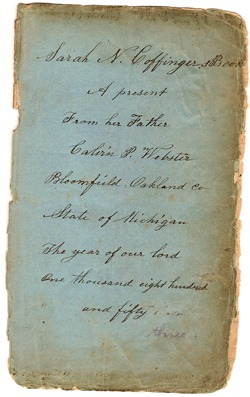 Sarah N. Coffinger,s Book
A present
From her Father
Calvin P. Webster
Bloomfield Oakland co
State of Michigan
The year of our lord
One thousand eight hundred
and fifty
three